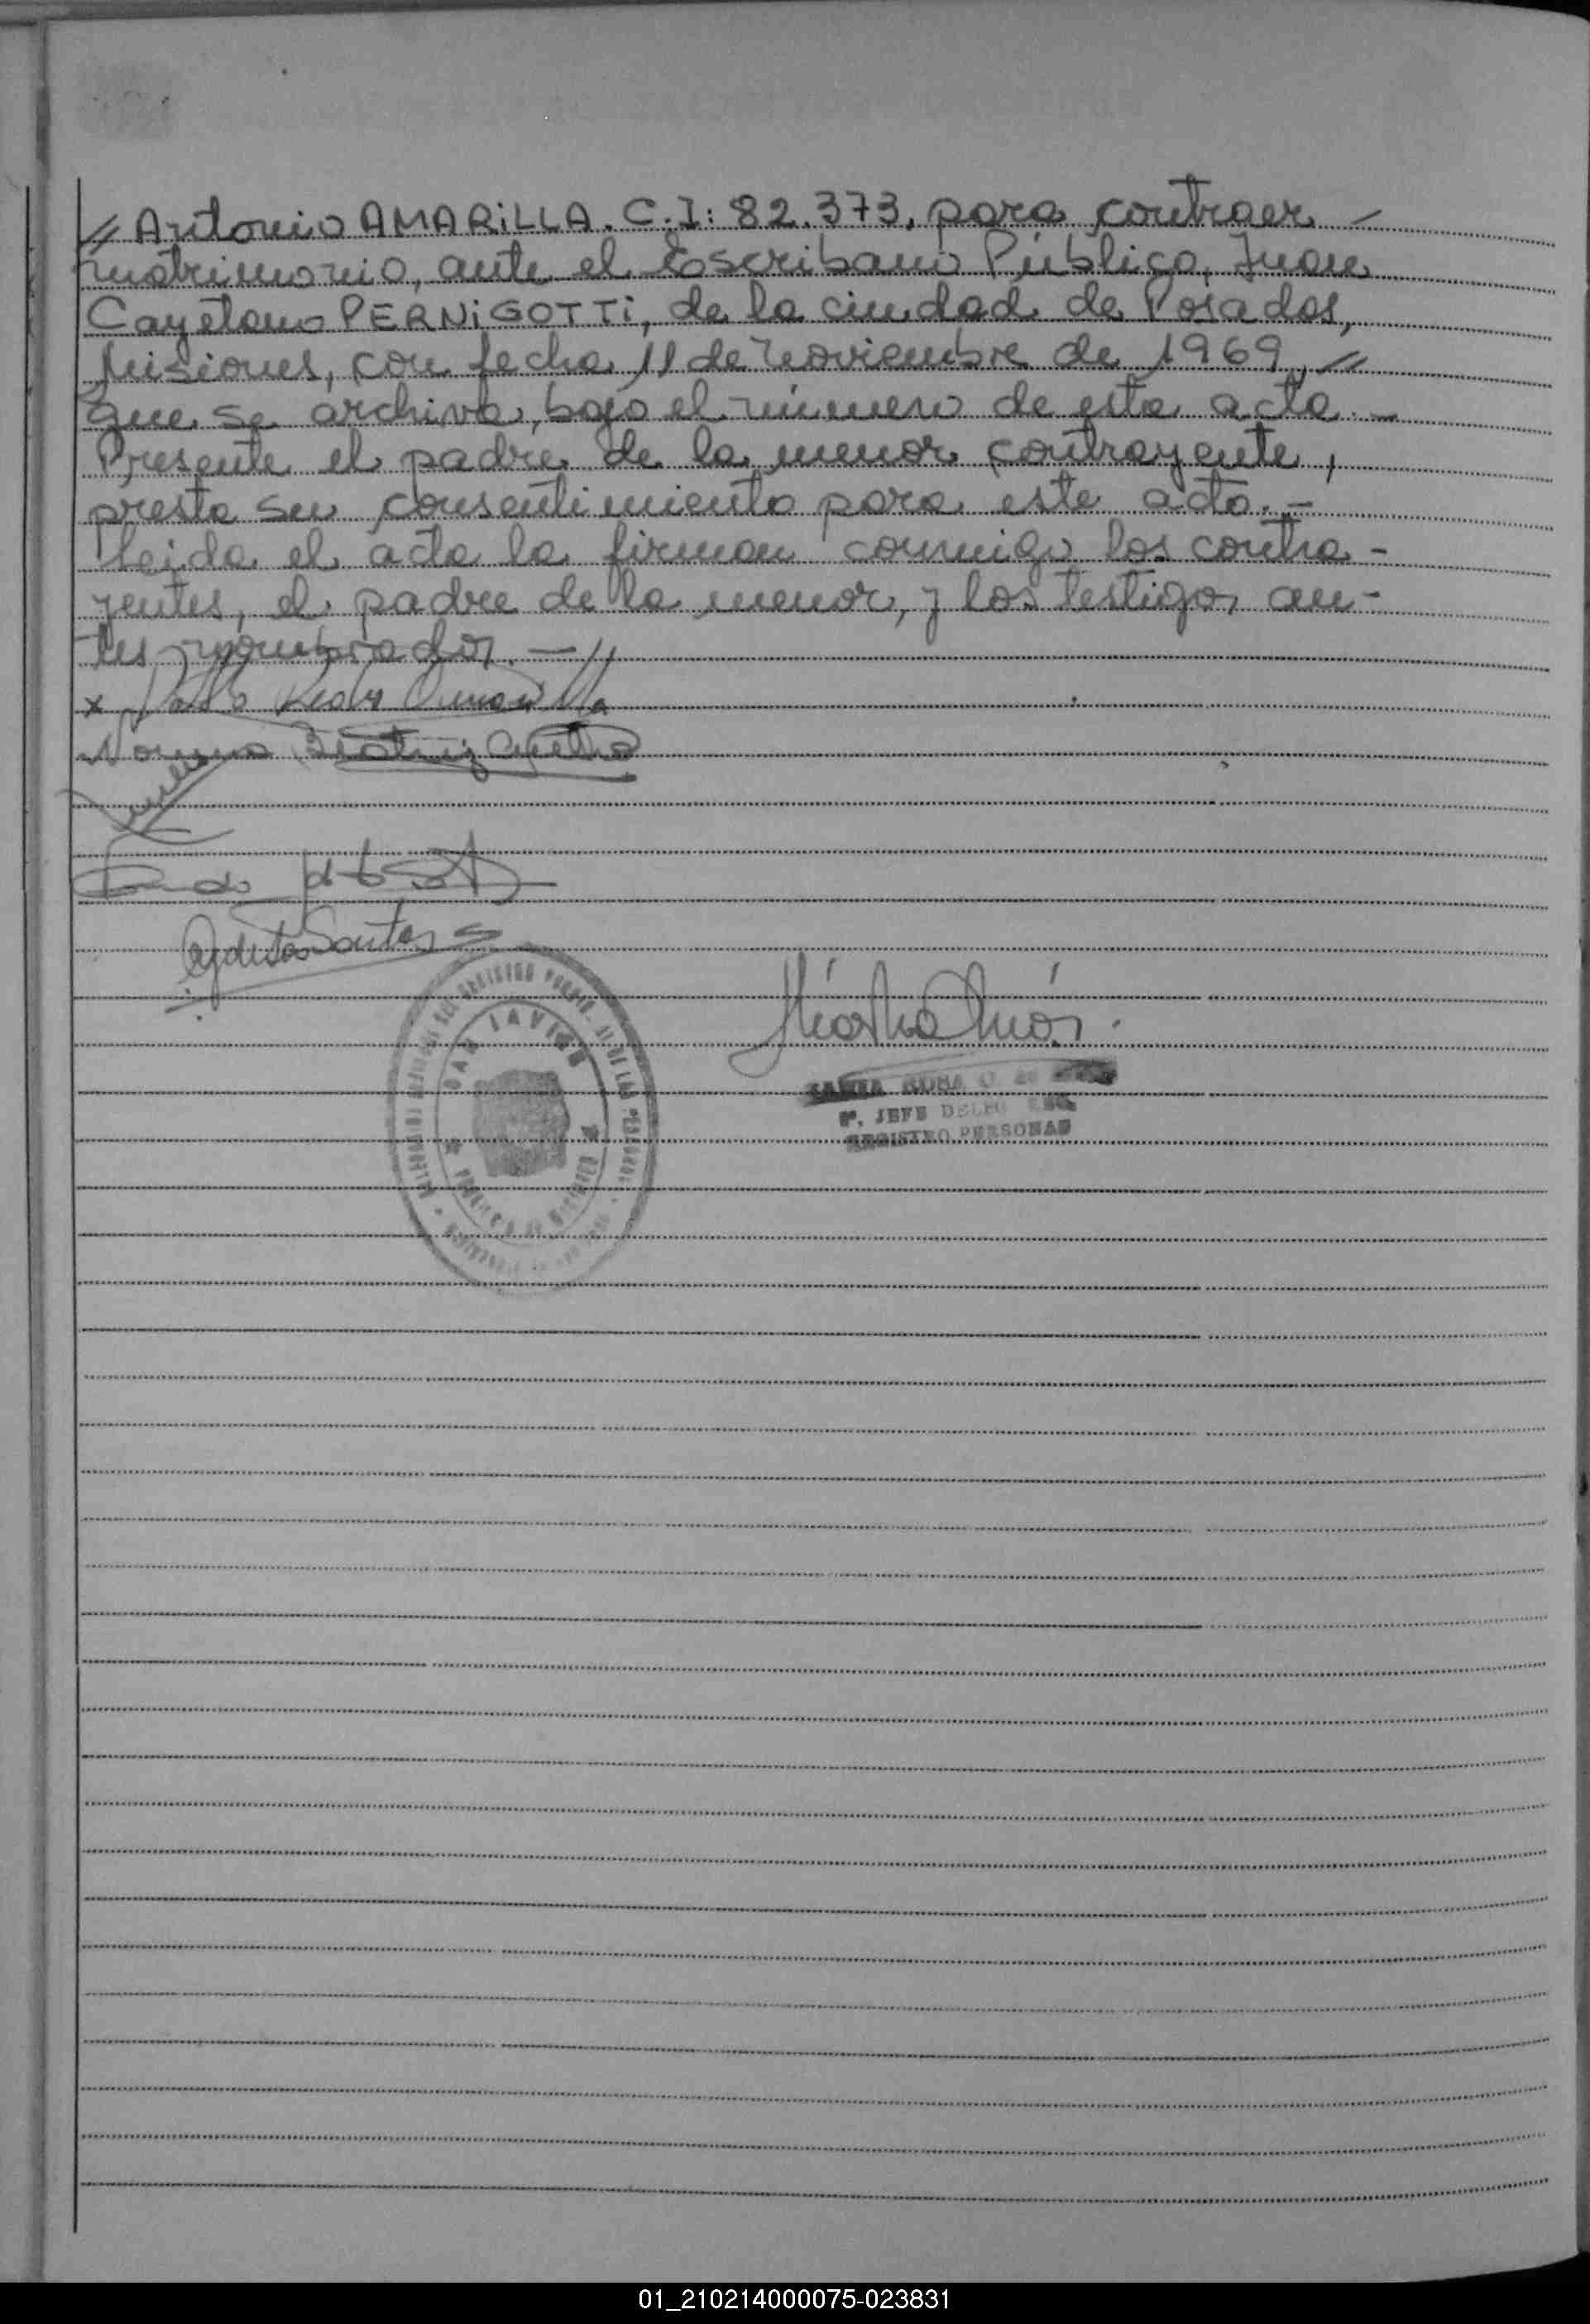 // Antonio AMARiLLA. C.I: 82.373, para contraer -
matrimonio, ante el Escribano Público, Juan
Cayetano PERNiGOTTi, de la ciudad de Posadas,
Misiones, con fecha 11 de noviembre de 1969, //
que se archiva, bajo el número de esta acta. -
Presente el padre de la menor contrayente,
presta su consentimiento para este acto. -
Leida el acta la firman conmigo los contra -
yentes, el padre de la menor, y los testigos an -
tes nombrados. - //
x Pedro Amarilla
Norma Beatriz
Santos
SAN JAVIER
2º. JEFE
REGISTRO PERSONAS
01_210214000075-023831